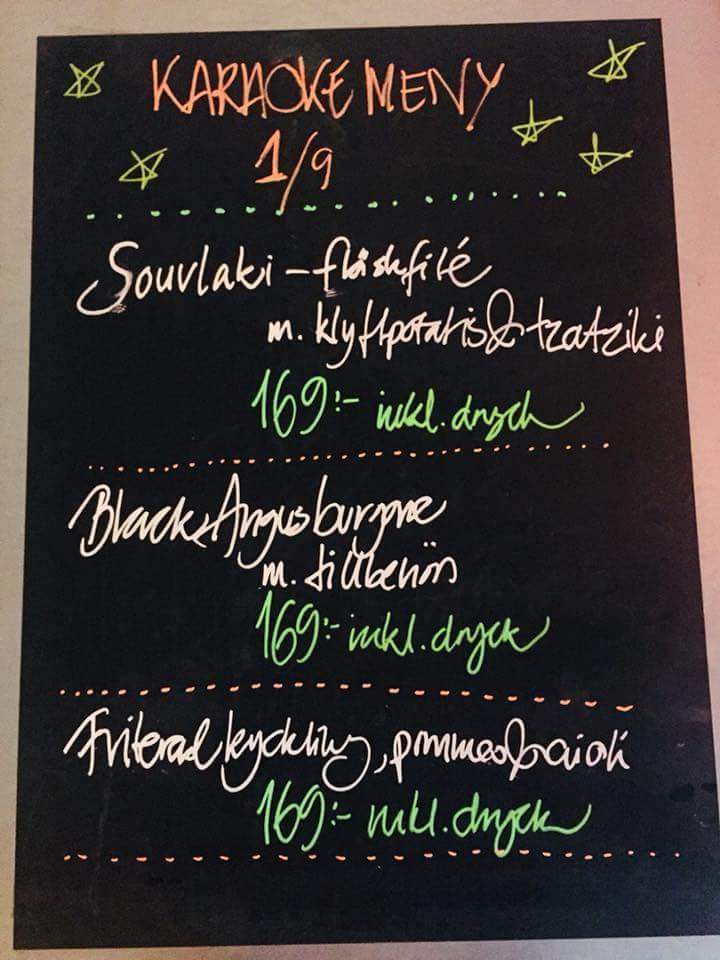 KARAOKE MENY
1/9
Souvlaki – fläskfilé
m. klyftpotatis & tzatziki
169:- inkl. dryck
Black Angus burgare
m. tillbehör
169:- inkl. dryck
Friterad kyckling, pommes & aioli
169:- inkl. dryck